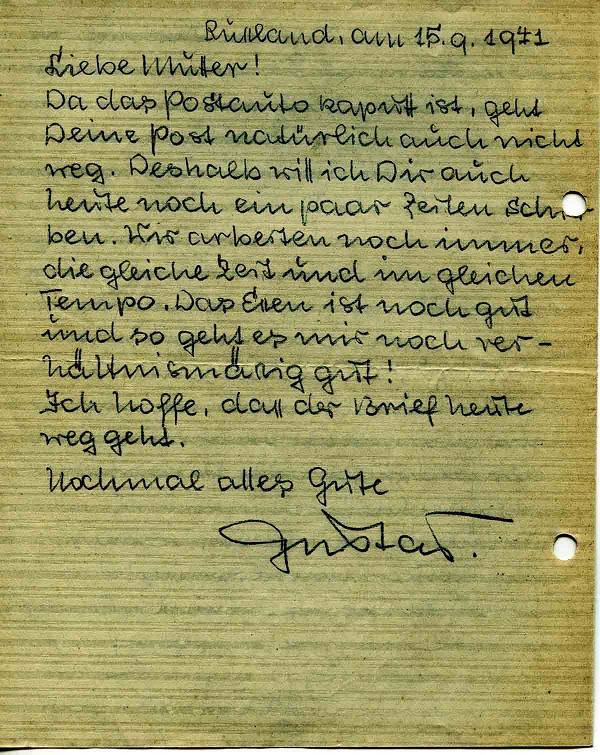 Russland, am 15.9.1941
Liebe Mutter!
Da das Postauto kaputt ist, geht
Deine Post natürlich auch nicht
weg. Deshalb will ich Dir auch
heute noch ein paar Zeilen schrei-
ben. Wir arbeiten noch immer,
die gleiche Zeit und im gleichen
Tempo. Das Essen ist noch gut
und so geht es mir noch ver-
hältnismässig gut!
Ich hoffe, dass der Brief heute
weg geht.
Nochmal alles Gute
Gustav.